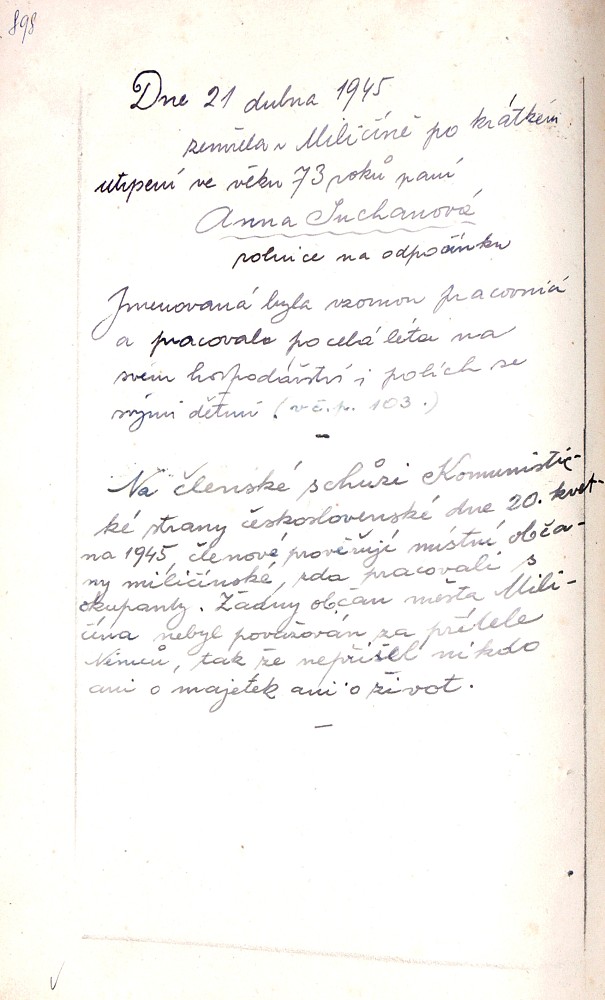 898
Dne 21 dubna 1945
zemřela v Miličíně po krátkém
utrpení ve věku 73 roků paní
Anna Suchanová
rolnice na odpočinku
Jmenovaná byla vzornou pracovnicí
a pracovala po celá léta na
svém hospodářství i polích se
svými dětmi (v č.p. 103.)
-
Na členské schůzi Komunistic-
ké strany československé dne 20. květ-
na 1945 členové prověřují místní obča-
ny miličínské, zda pracovali s
okupanty. Žádný občan města Mili-
čína nebyl považován za přítele
Němců, tak že nepřišel nikdo
ani o majetek ani o život.
-